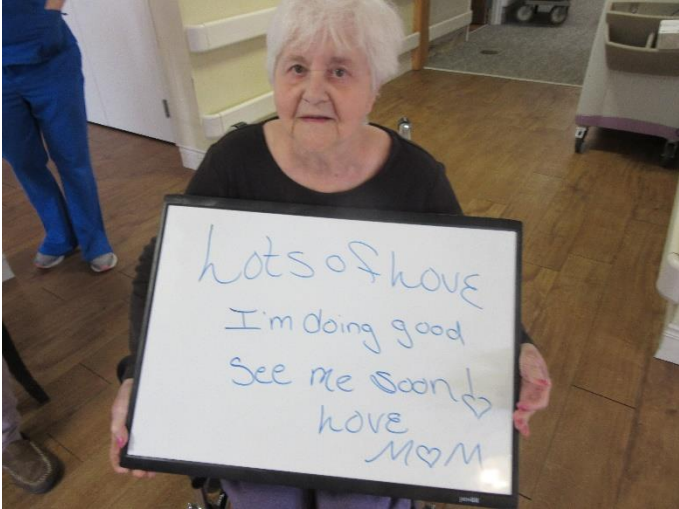 Lots of Love
I'm doing good
See me soon! ♡
Love
MOM